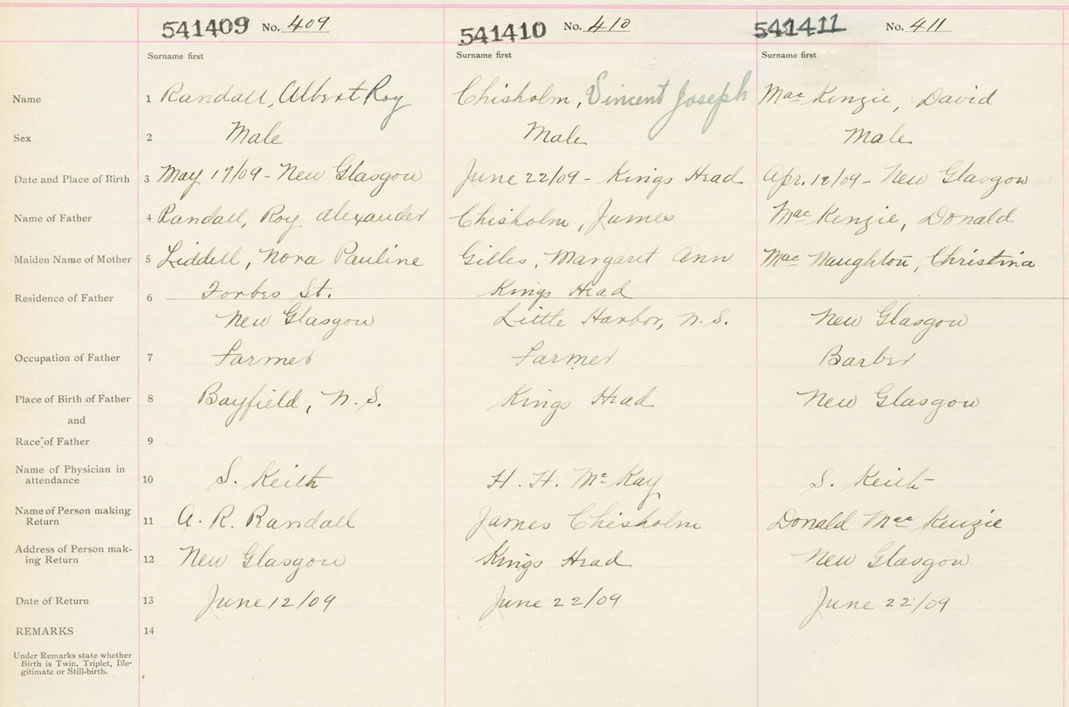 541409 No. 409 541410 No. 410 541411 No. 411
Surname first Surname first Surname first
Name 1 Randall, Albert Roy Chisholm, Vincent Joseph MacKenzie, David
Sex 2 Male Male Male
Date and Place of Birth 3 May 17/09 - New Glasgow June 22/09 - Kings Head Apr. 12/09 - New Glasgow
Name of Father 4 Randall, Roy Alexander Chisholm, James MacKenzie, Donald
Maiden Name of Mother 5 Liddell, Nora Pauline Gilles, Margaret Ann MacNaughton, Christina
Residence of Father 6 Forbes St. Kings Head
New Glasgow Little Harbor, N.S. New Glasgow
Occupation of Father 7 Farmer Farmer Barber
Place of Birth of Father 8 Bayfield, N.S. Kings Head New Glasgow
and
Race of Father 9
Name of Physician in
attendance 10 S. Keith H. H. McKay S. Keith
Name of Person making
Return 11 A. R. Randall James Chisholm Donald MacKenzie
Address of Person mak-
ing Return 12 New Glasgow Kings Head New Glasgow
Date of Return 13 June 12/09 June 22/09 June 22/09
REMARKS 14
Under Remarks state whether
Birth is Twin, Triplet, Ille-
gitimate or Still-birth.